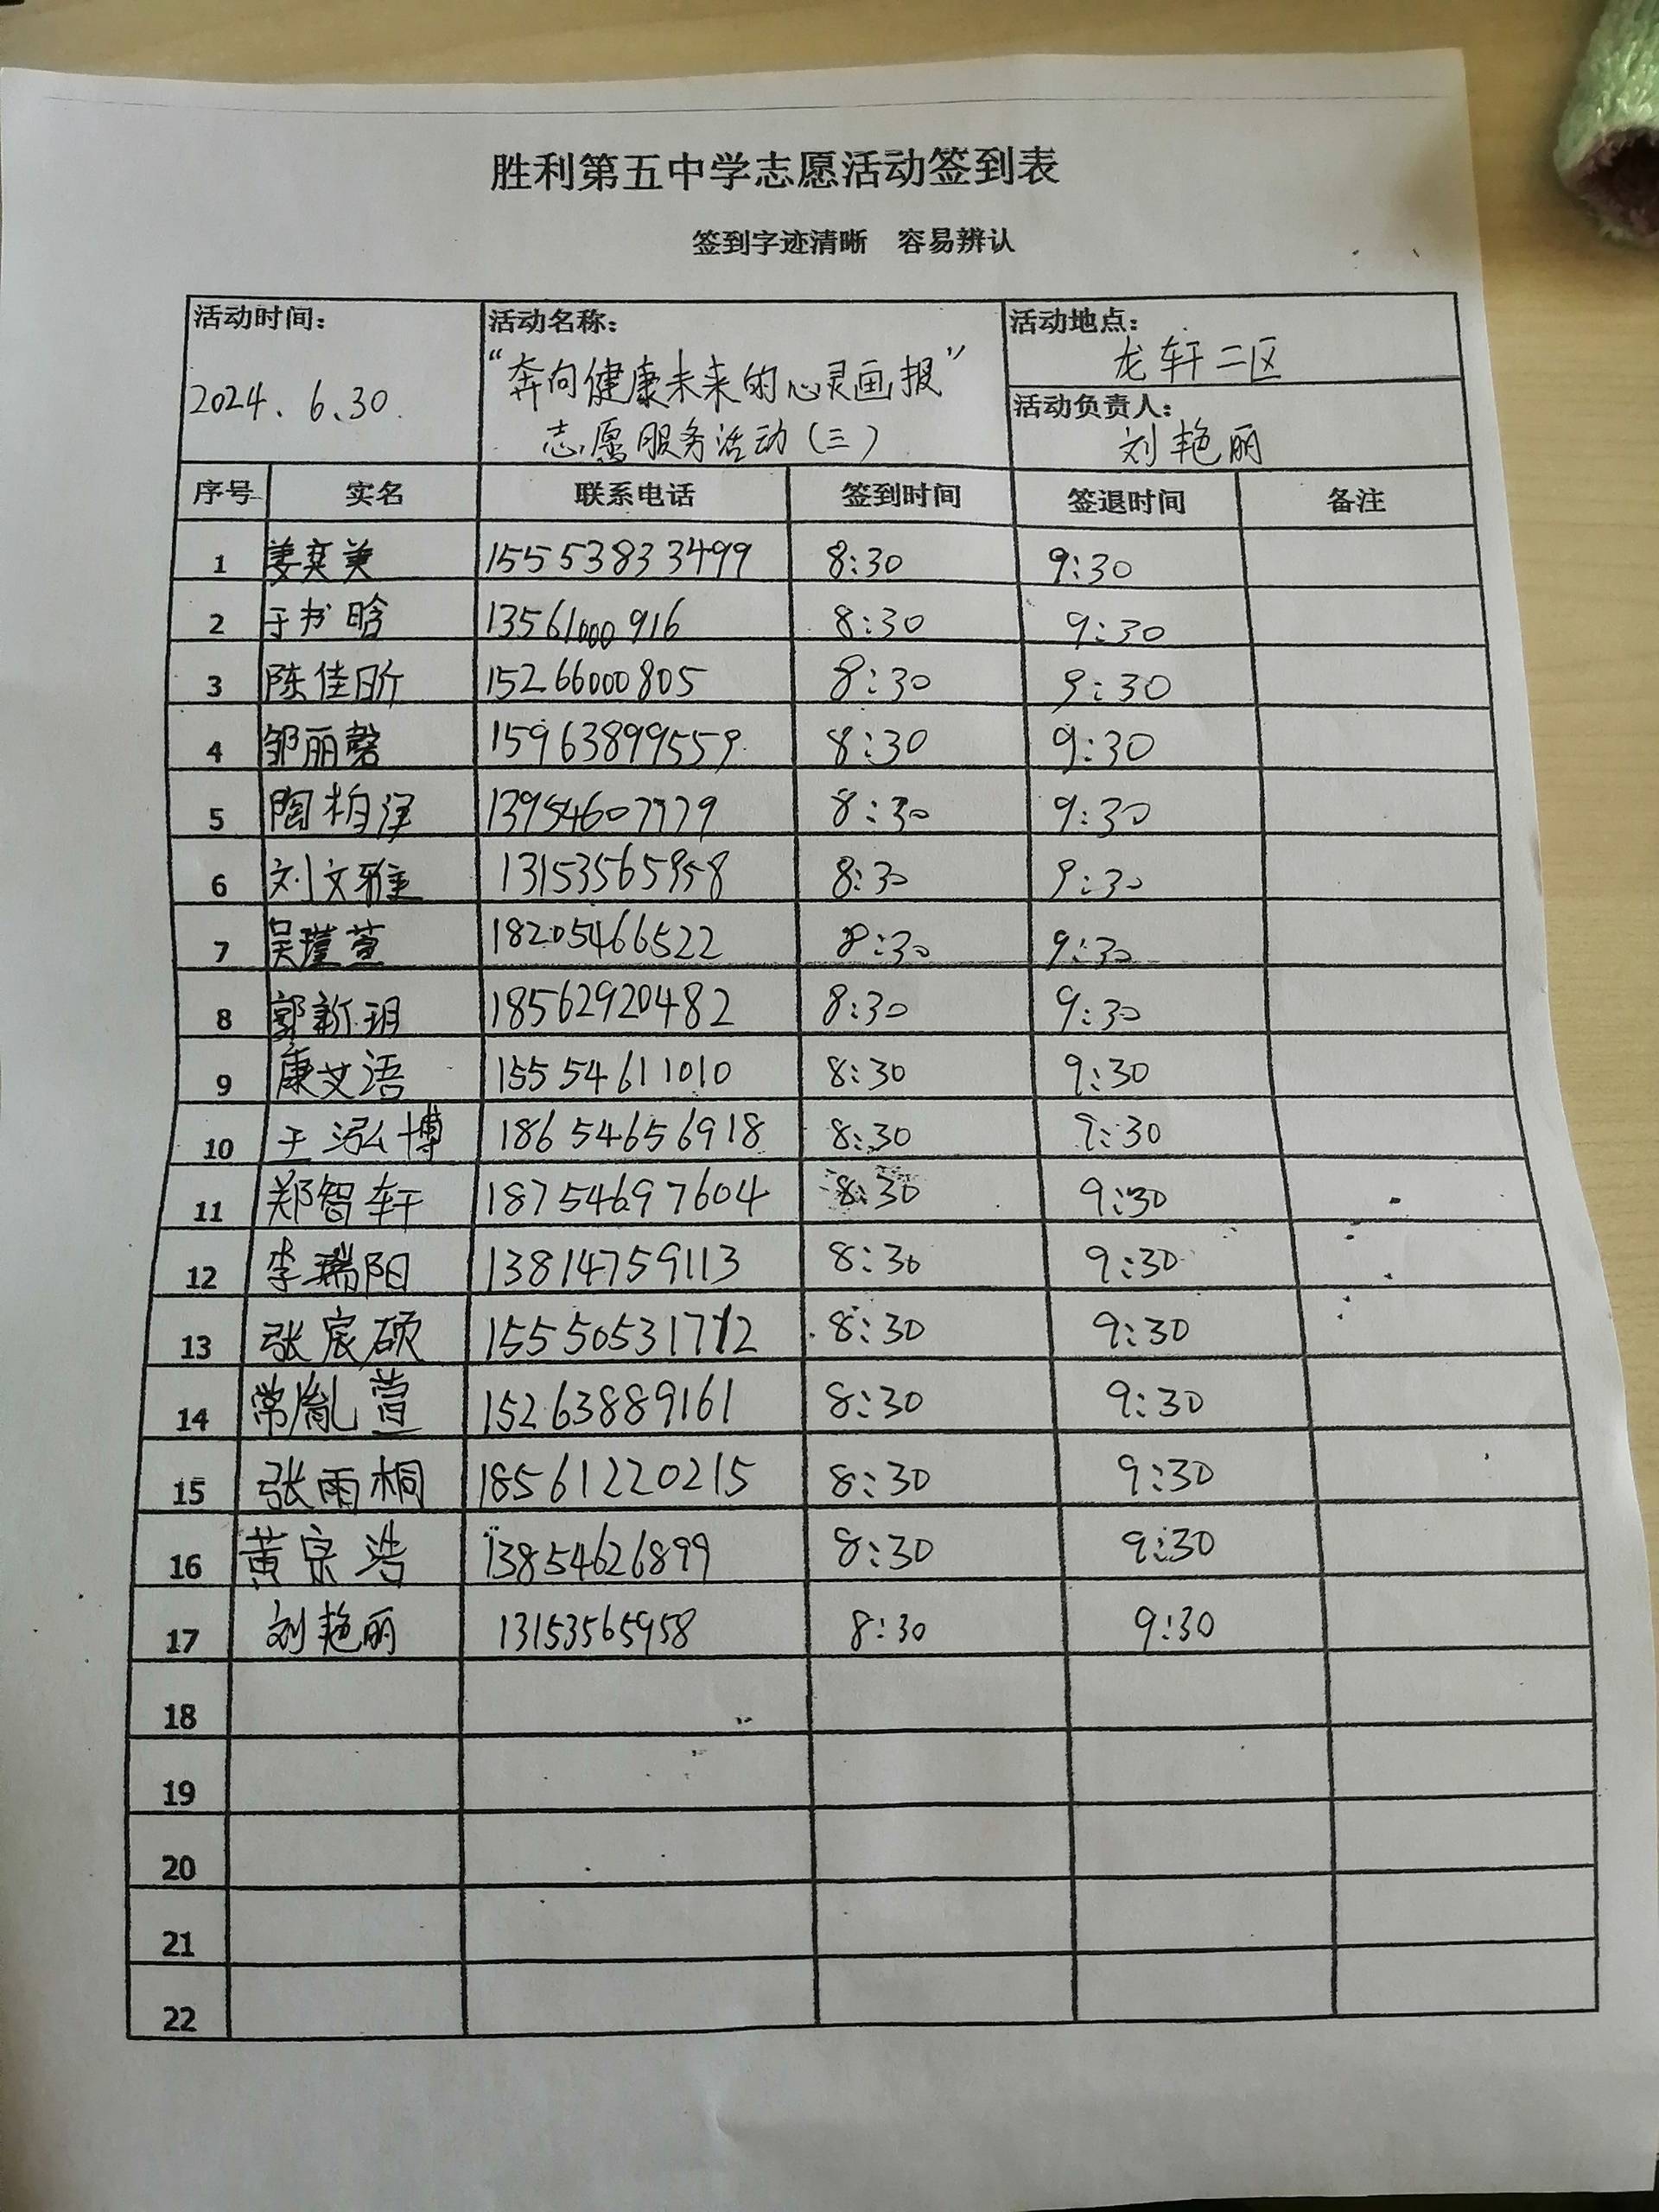 胜利第五中学志愿活动签到表
签到字迹清晰 容易辨认
活动时间：
2024.6.30.
活动名称：
“奔向健康未来的心灵画报”
志愿服务活动（三）
活动地点：
龙轩二区
活动负责人：
刘艳丽
序号 实名 联系电话 签到时间 签退时间 备注
1 姜奕美 15553833499 8:30 9:30
2 于书晗 13561000916 8:30 9:30
3 陈佳昕 15266000805 8:30 9:30
4 邹丽馨 15963899559 8:30 9:30
5 陶柏洋 13954607979 8:30 9:30
6 刘文雅 13153565958 8:30 9:30
7 吴瑾萱 18205466522 8:30 9:30
8 郭新玥 18562920482 8:30 9:30
9 康艾语 15554611010 8:30 9:30
10 王泓博 18654656918 8:30 9:30
11 郑智轩 18754697604 8:30 9:30
12 李瑞阳 13814759113 8:30 9:30
13 张宸硕 8:30 9:30
14 常胤萱 15263889161 8:30 9:30
15 张雨桐 18561220215 8:30 9:30
16 黄宗浩 13854626899 8:30 9:30
17 刘艳丽 13153565958 8:30 9:30
18
19
20
21
22